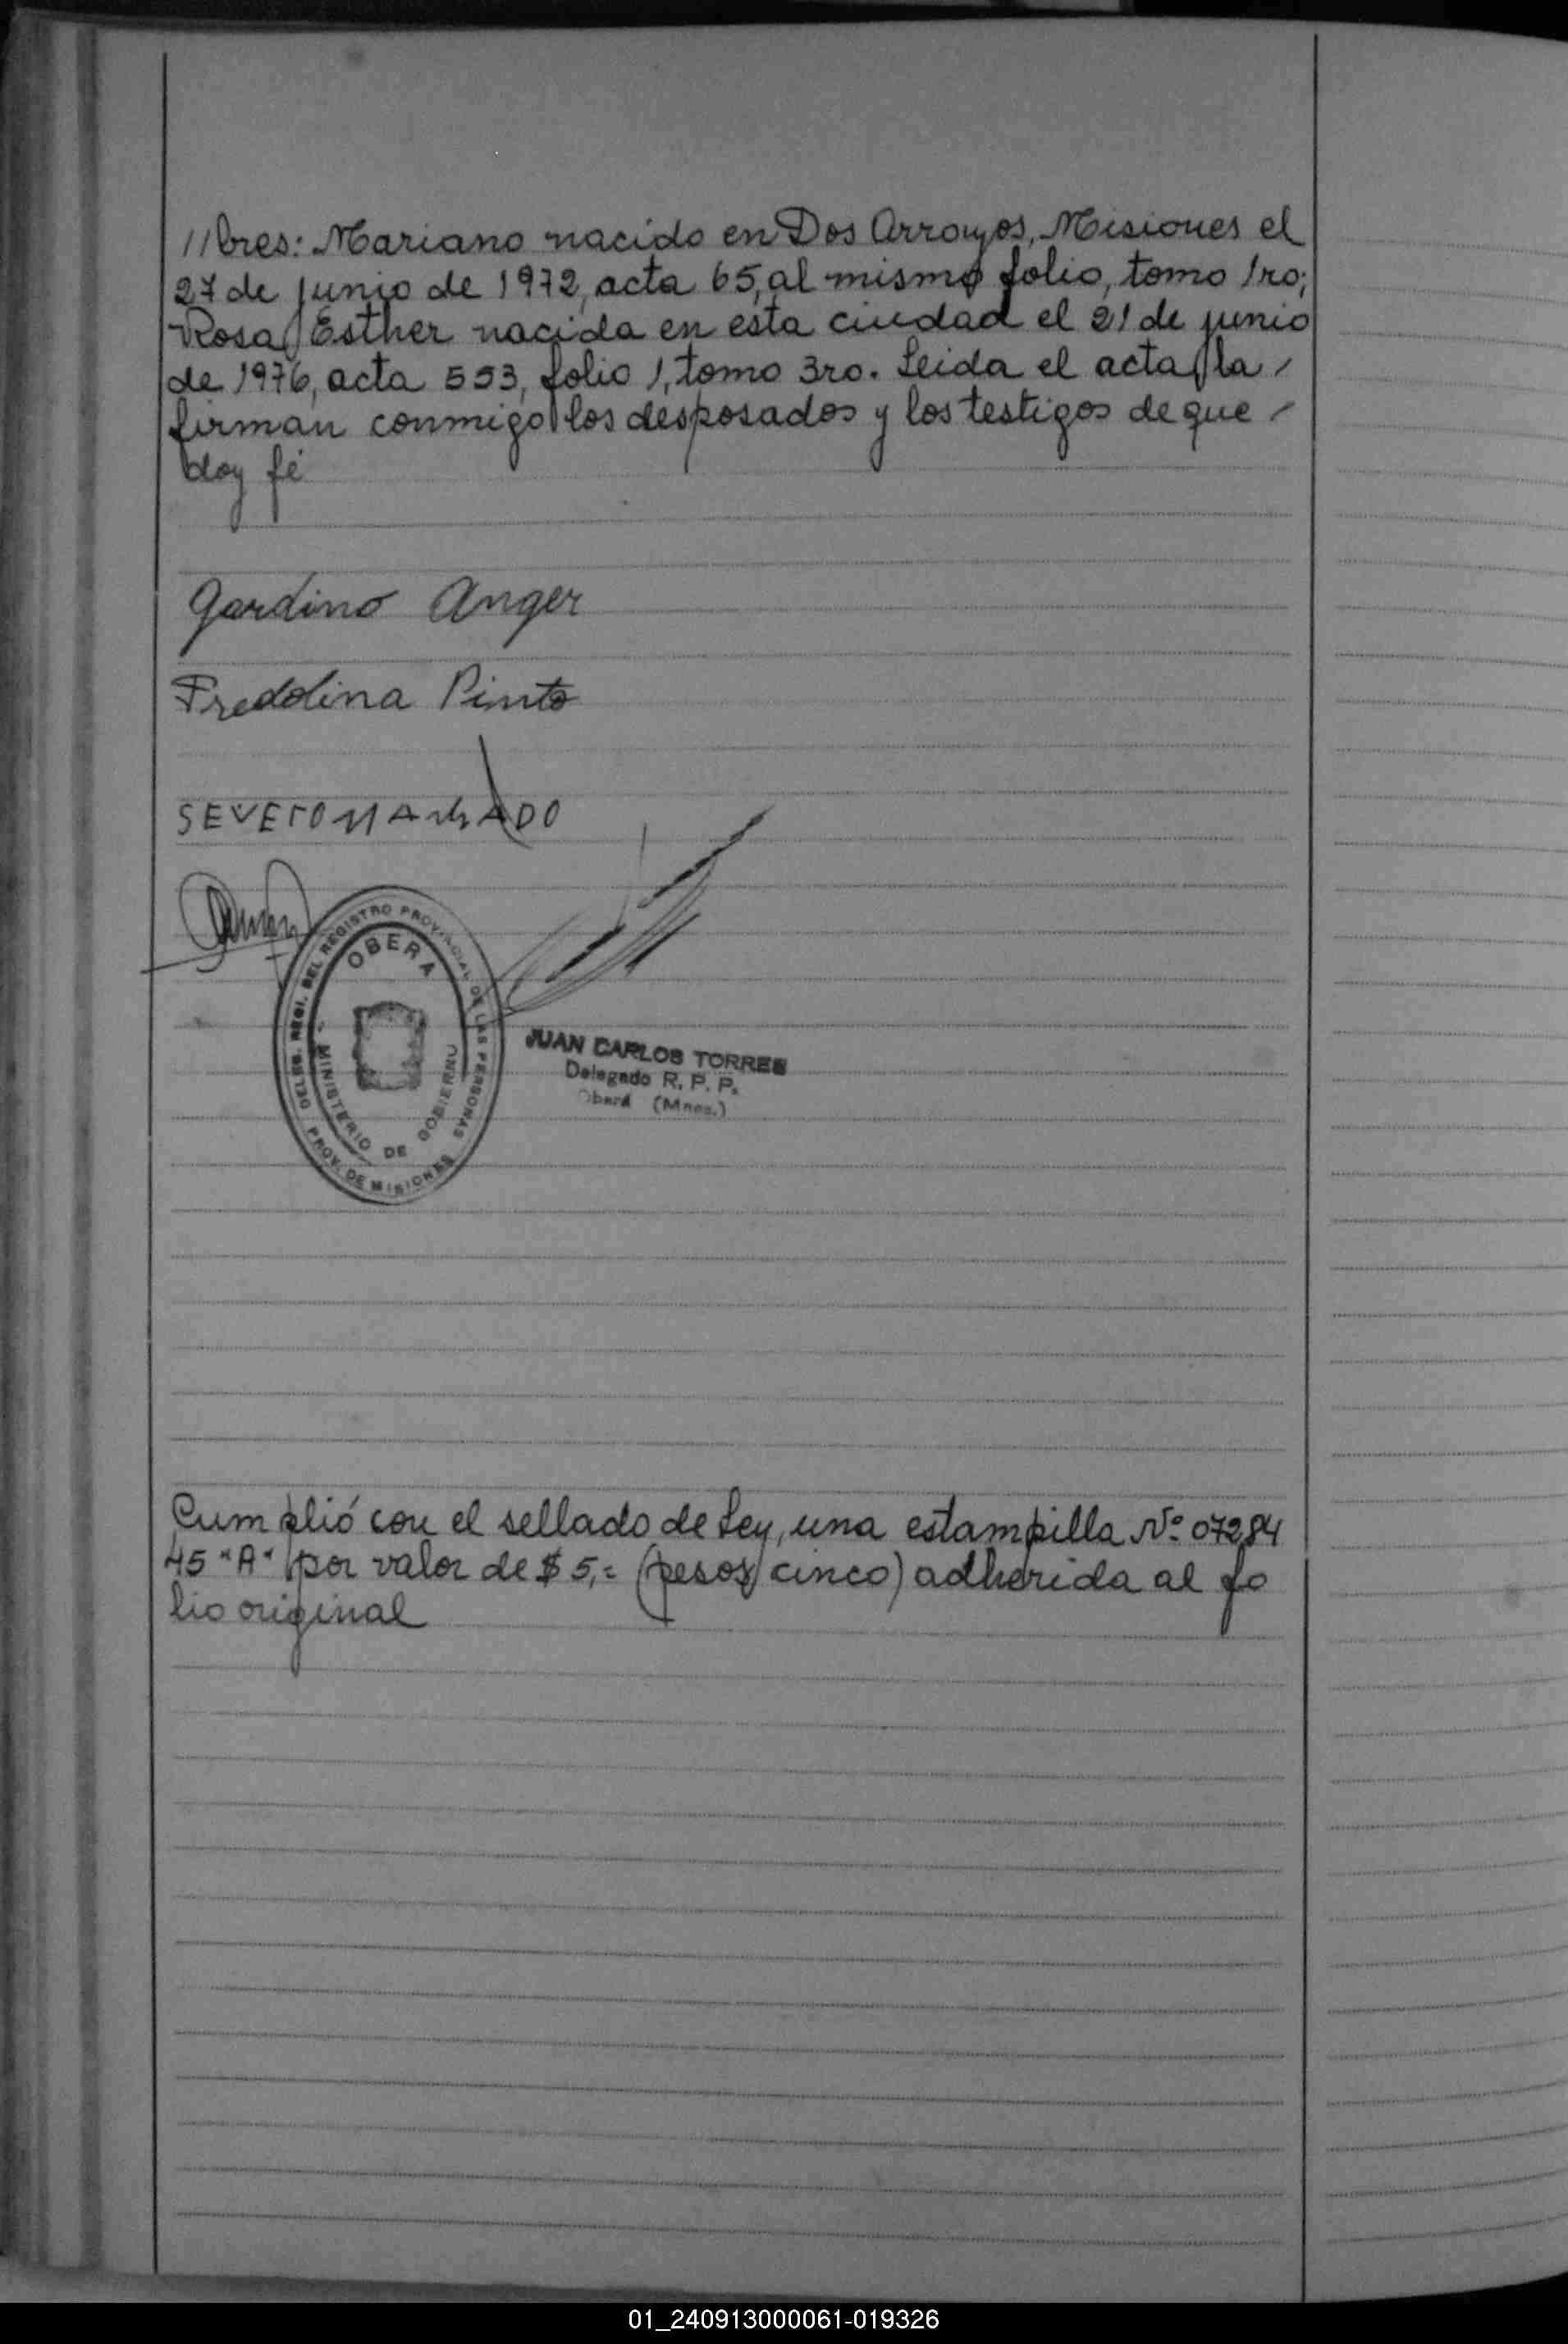 //bres: Mariano nacido en Dos Arroyos, Misiones el
27 de junio de 1972, acta 65, al mismo folio, tomo 1ro;
Rosa Esther nacida en esta ciudad el 21 de junio
de 1976, acta 553, folio 1, tomo 3ro. Leida el acta la /
firman conmigo los desposados y los testigos de que /
doy fé
Gardino Anger
Fredolina Pinto
SEVERO MAchADO
DELEG. REGI. DEL REGISTRO PROVINCIAL DE LAS PERSONAS
OBERA
MINISTERIO DE GOBIERNO
PROV. DE MISIONES
JUAN CARLOS TORRES
Delegado R. P. P.
Oberá (Mnes.)
Cumplió con el sellado de Ley, una estampilla Nº 07284
45 "A" por valor de $ 5,= (pesos cinco) adherida al fo
lio original
01_240913000061-019326